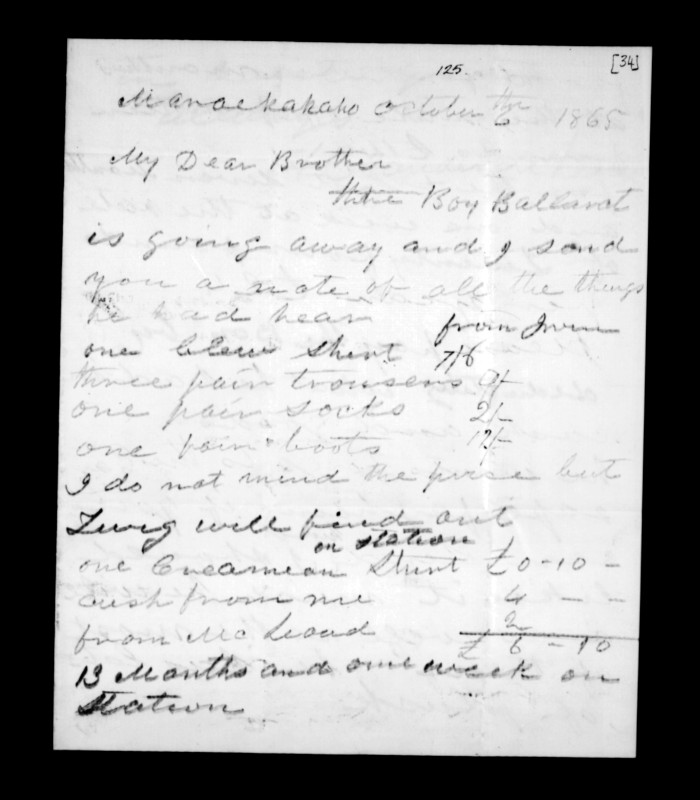 [34]
125.
Manaekakaho October 6th 1865
My Dear Brother
thee Boy Ballarat
is going away and I send
you a note of all the things
he had hear
from Irvin
one blew shirt 7/6
three pair trousers 9/-
one pair socks 2/-
one pair boots 17/-
I do not mind the prise but
will find out
on station
one Creamean Shirt £0-10-
cash from me 4 - -
from Mc Leoud 2
£ 6-10
13 Months and one week on
Station